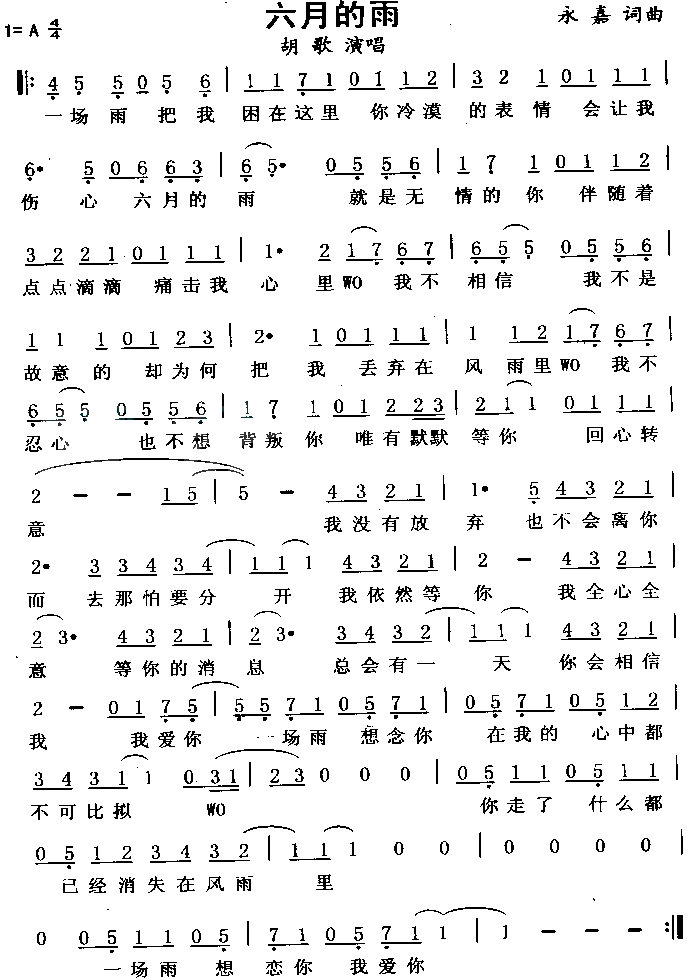 六月的雨
1= A 4/4 永 嘉 词曲
胡 歌 演唱
4 5 5 0 5 6 | 1 1 7 1 0 1 1 2 | 3 2 1 0 1 1 1 |
一场 雨 把 我 困在这里 你冷漠 的表 情 会让我
6· 5 0 6 6 3 | 6 5· 0 5 5 6 | 1 7 1 0 1 1 2 |
伤 心 六月的 雨 就是无 情的 你 伴随着
3 2 2 1 0 1 1 1 | 1· 2 1 7 6 7 | 6 5 5 0 5 5 6 |
点点滴滴 痛击我 心 里WO 我不 相信 我不是
1 1 1 0 1 2 3 | 2· 1 0 1 1 1 | 1 1 2 1 7 6 7 |
故意 的 却为何 把 我 丢弃在 风 雨里WO 我不
6 5 5 0 5 5 6 | 1 7 1 0 1 2 2 3 | 2 1 1 0 1 1 1 |
忍心 也不想 背叛 你 唯有默默 等你 回心转
2 - - 1 5 | 5 - 4 3 2 1 | 1· 5 4 3 2 1 |
意 我没有放 弃 也不会离你
2· 3 3 4 3 4 | 1 1 1 4 3 2 1 | 2 - 4 3 2 1 |
而 去那怕要分 开 我依然等 你 我全心全
2 3· 4 3 2 1 | 2 3· 3 4 3 2 | 1 1 1 4 3 2 1 |
意 等你的消 息 总会有一 天 你会相信
2 - 0 1 7 5 | 5 5 7 1 0 5 7 1 | 0 5 7 1 0 5 1 2 |
我 我爱你 一场雨 想念你 在我的 心中都
3 4 3 1 1 0 3 1 | 2 3 0 0 0 | 0 5 1 1 0 5 1 1 |
不可比拟 WO 你走了 什么都
0 5 1 2 3 4 3 2 | 1 1 1 0 0 | 0 0 0 0 |
已经消失在风雨 里
0 0 5 1 1 0 5 | 7 1 0 5 7 1 1 | 1 - - - :||
一场雨 想 恋你 我爱你